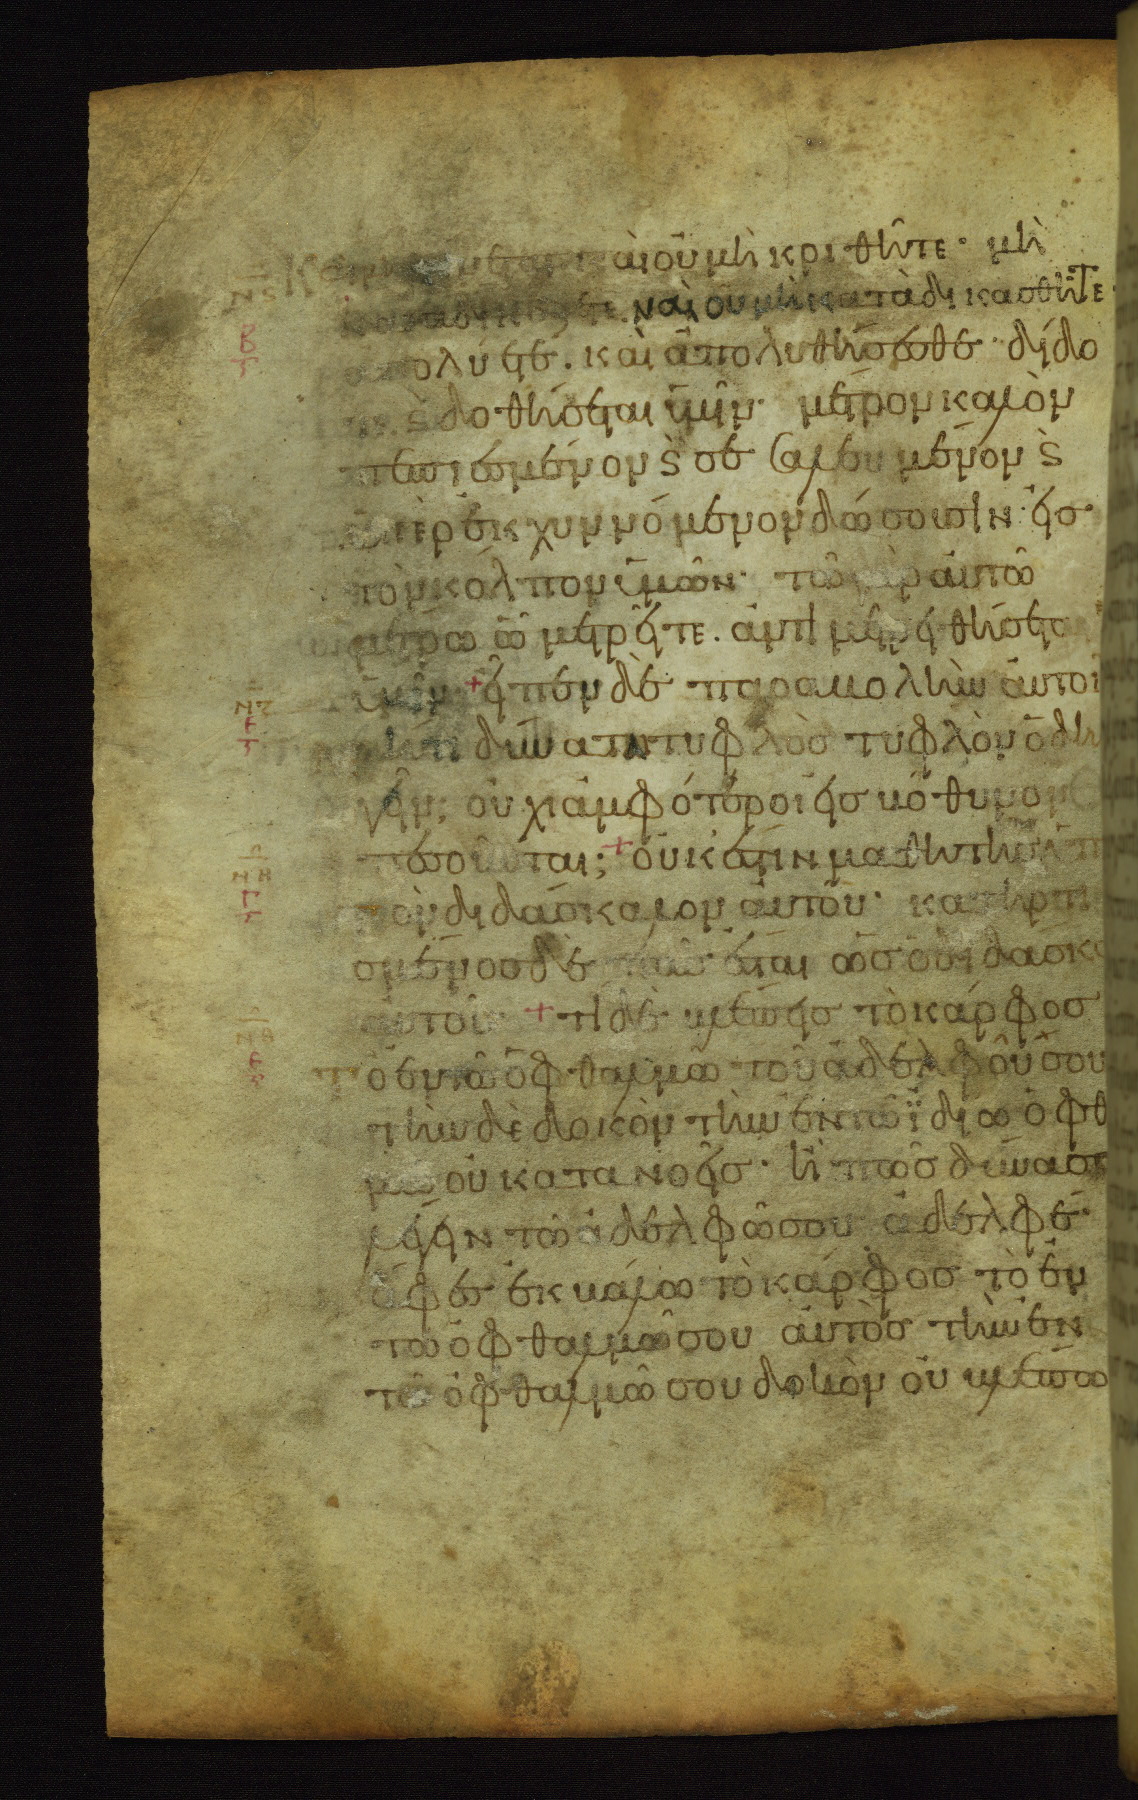 Καὶ μὴ κρίνετε καὶ οὐ μὴ κριθῆτε· μὴ
καταδικάζετε. καὶ οὐ μὴ καταδικασθῆτε·
ἀπολύετε. καὶ ἀπολυθήσεσθε· δίδο
τε. ϗ δοθήσεται ὑμῖν· μέτρον καλὸν
πεπιεσμένον ϗ σεσαλευμένον ϗ
ὑπερεκχυννόμενον δώσουσιν εἰς
τὸν κόλπον ὑμῶν· τῶ γὰρ αὐτῶ
μέτρω ὧ μετρεῖτε. ἀντιμετρηθήσεται
ὑμῖν + εἶπεν δὲ παραβολὴν αὐτοῖς
μήτι δύναται τυφλὸσ τυφλὸν ὁδη
γεῖν; οὐχὶ ἀμφότεροι εἰσ βόθυνον
πεσοῦνται; + οὐκ ἔστιν μαθητὴς ὑπὲρ
τὸν διδάσκαλον αὐτοῦ· κατηρτι
σμένοσ δὲ πᾶσ ἔσται ὡσ ὁ διδάσκα
αὐτοῦ· + τί δὲ βλέπεισ τὸ κάρφοσ
τὸ ἐν τῶ ὀφθαλμῶ τοῦ ἀδελφοῦ σου
τὴν δὲ δοκὸν τὴν ἐν τῶ ἰδίω ὀφθ
μῶ οὐ κατανοεῖσ· ἢ πῶσ δύνασαι
λέγειν τῶ ἀδελφῶ σου ἀδελφέ·
ἄφες ἐκβάλω τὸ κάρφοσ τὸ ἐν
τῶ ὀφθαλμῶ σου αὐτὸσ τὴν ἐν
τῶ ὀφθαλμῶ σου δοκὸν οὐ βλέπω
ΝϚ
Β
ΝΖ
Ε
ΝΗ
Γ
ΝΘ
Ε